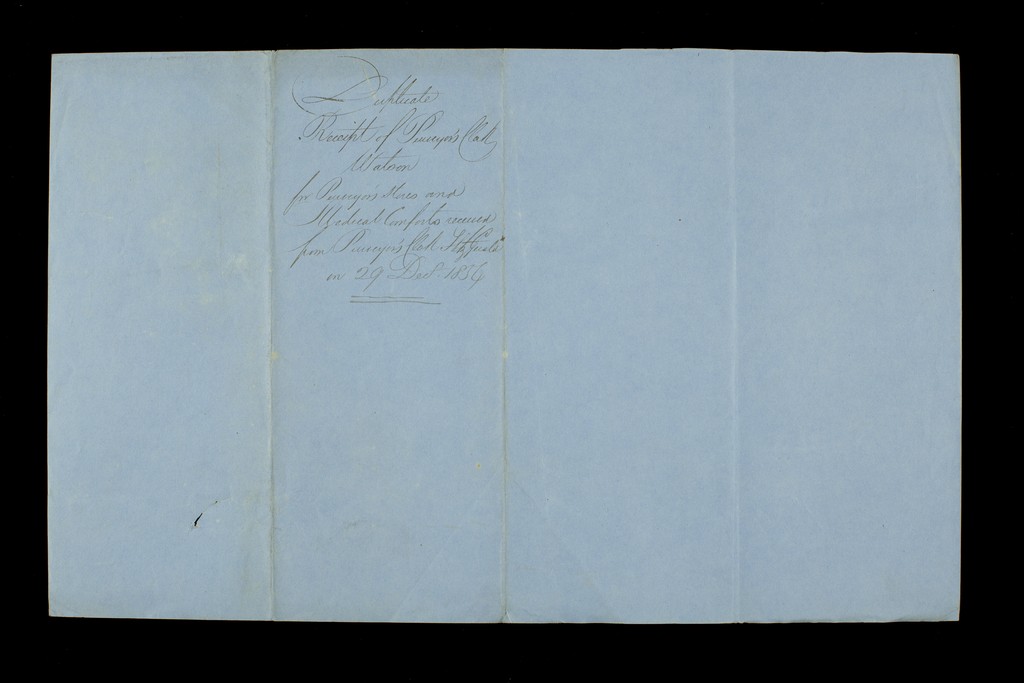 Duplicate
Receipt of Purveyor's Clerk
Watson
for Purveyor's Stores and
Medical Comforts received
from Purveyor's Clerk
on 29 Decr. 1854